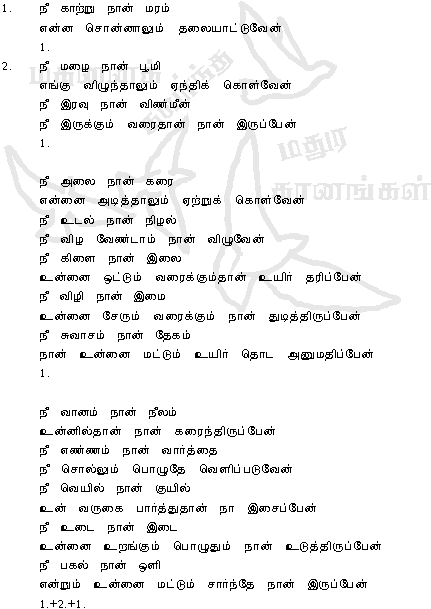 1. நீ காற்று நான் மரம்
என்ன சொன்னாலும் தலையாட்டுவேன்
1.
2. நீ மழை நான் பூமி
எங்கு விழுந்தாலும் ஏந்திக் கொள்வேன்
நீ இரவு நான் விண்மீன்
நீ இருக்கும் வரைதான் நான் இருப்பேன்
1.
மதுர
கானங்கள்
நீ அலை நான் கரை
என்னை அடித்தாலும் ஏற்றுக் கொள்வேன்
நீ உடல் நான் நிழல்
நீ விழ வேண்டாம் நான் விழுவேன்
நீ கிளை நான் இலை
உன்னை ஒட்டும் வரைக்கும்தான் உயிர் தரிப்பேன்
நீ விழி நான் இமை
உன்னை சேரும் வரைக்கும் நான் துடித்திருப்பேன்
நீ சுவாசம் நான் தேகம்
நான் உன்னை மட்டும் உயிர் தொட அனுமதிப்பேன்
1.
நீ வானம் நான் நீலம்
உன்னில்தான் நான் கரைந்திருப்பேன்
நீ எண்ணம் நான் வார்த்தை
நீ சொல்லும் பொழுதே வெளிப்படுவேன்
நீ வெயில் நான் குயில்
உன் வருகை பார்த்துதான் நா இசைப்பேன்
நீ உடை நான் இடை
உன்னை உறங்கும் பொழுதும் நான் உடுத்திருப்பேன்
நீ பகல் நான் ஒளி
என்றும் உன்னை மட்டும் சார்ந்தே நான் இருப்பேன்
1.+2.+1.